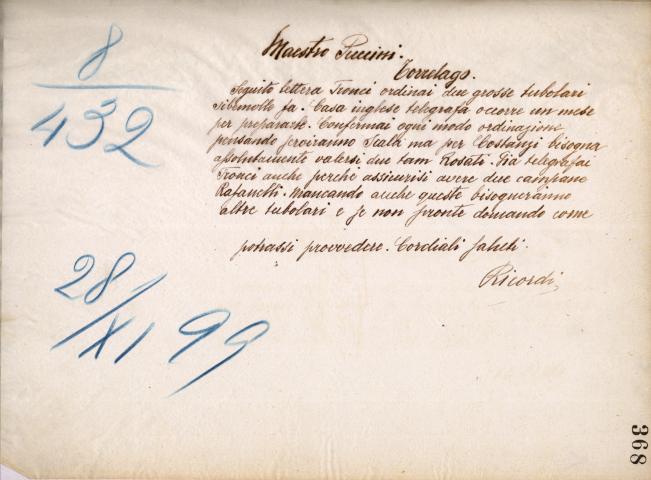 8
432
Maestro Puccini.
Torrelago.
Seguito lettera Tronci ordinai due grosse tubolari
sibemolle fa. Casa inglese telegrafa occorre un mese
per prepararle. Confermai ogni modo ordinazione
pensando serviranno Scala ma per Costanzi bisogna
assolutamente valersi due tam Rosati. Già telegrafai
Tronci anche perchè assicurisi avere due campane
Rafanelli. Mancando anche queste bisogneranno
altre tubolari e se non pronte domando come
potrassi provvedere. Cordiali saluti.
Ricordi
28/XI 99
368